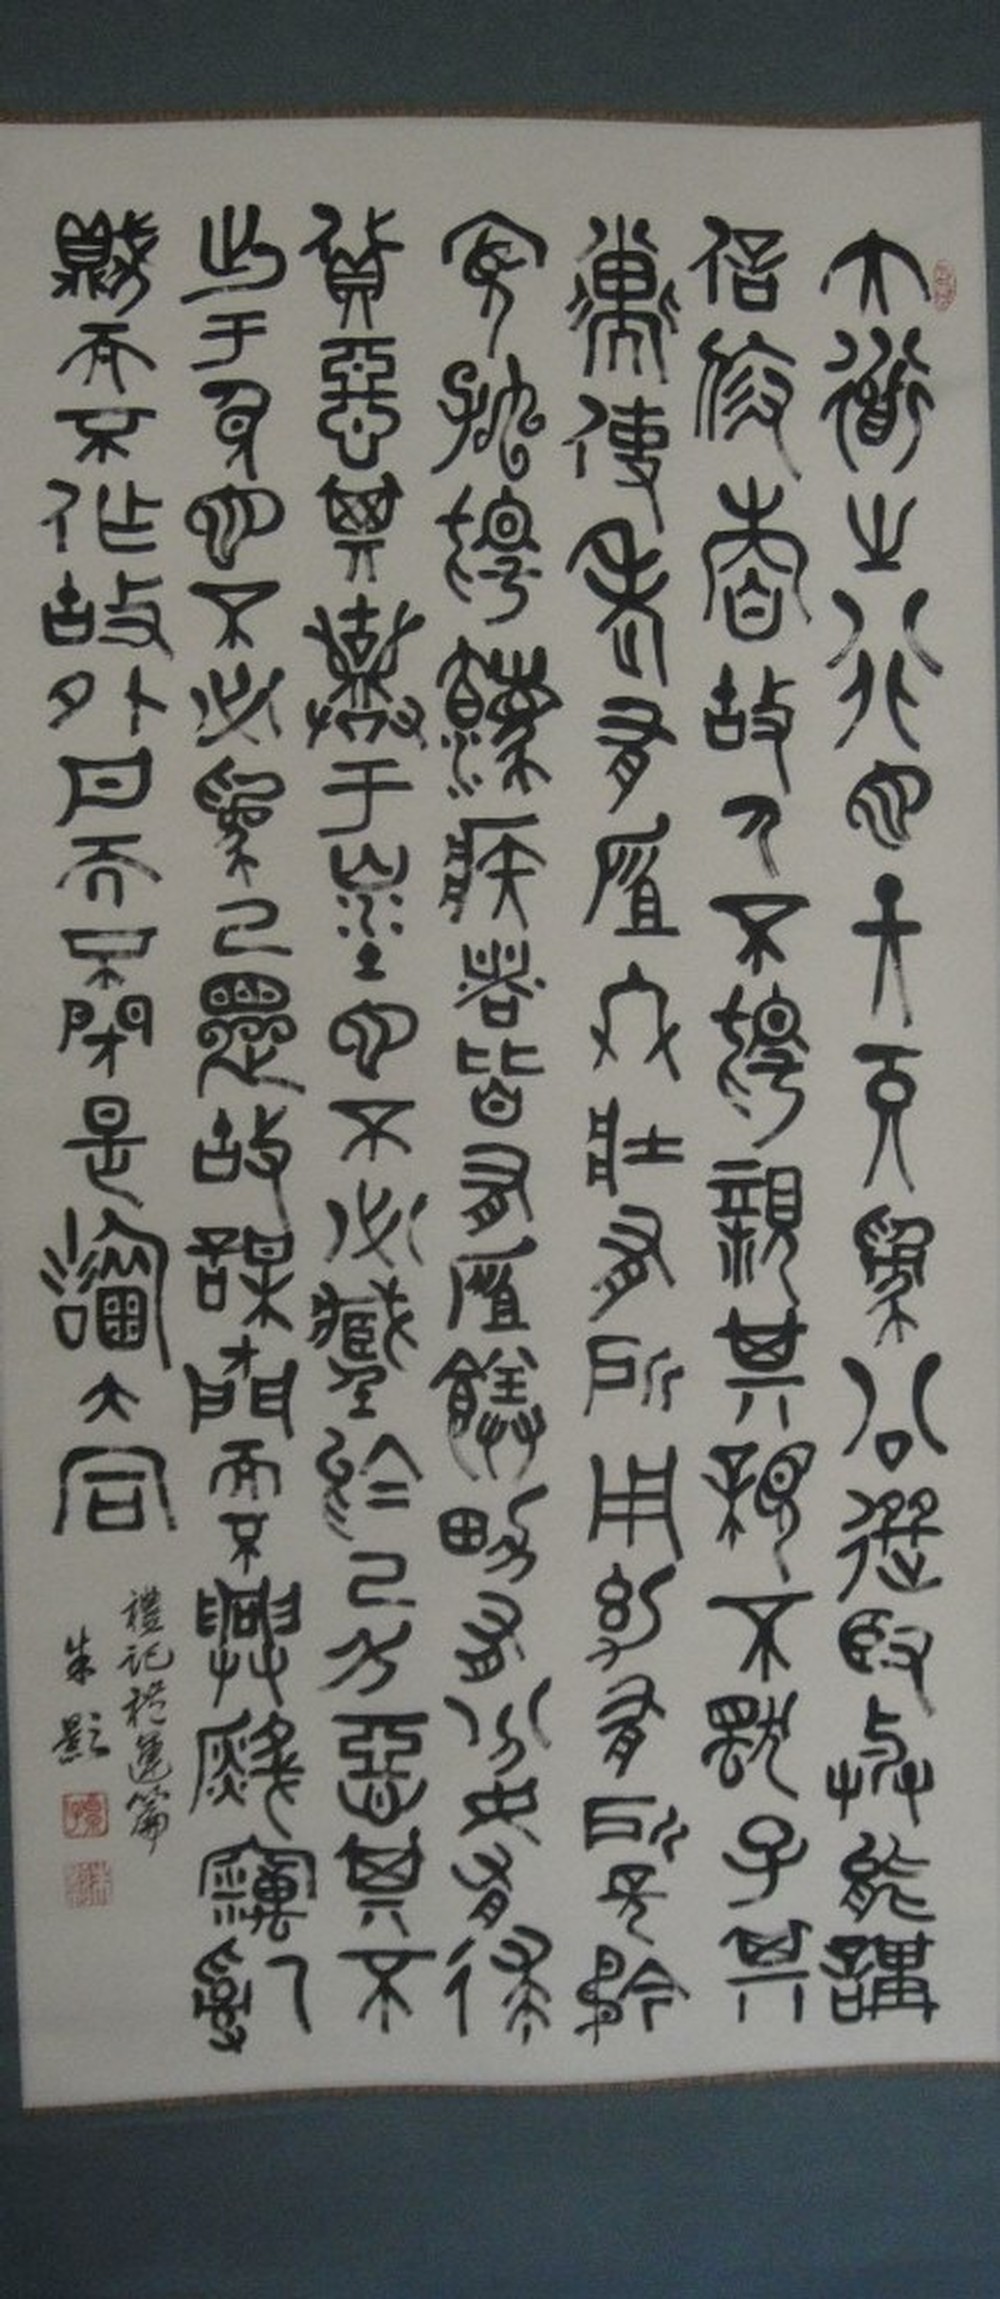 大道之行也天下為公選賢與能講
信修睦故人不獨親其親不獨子其
子使老有所終壯有所用幼有所長矜
寡孤獨廢疾者皆有所養男有分女有歸
貨惡其棄于地也不必藏於己力惡其不
出于身也不必為己是故謀閉而不興盜竊亂
賊而不作故外戶而不閉是謂大同
禮記禮運篇
朱影